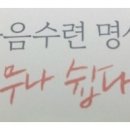 음수련 명상
무나 쉽다